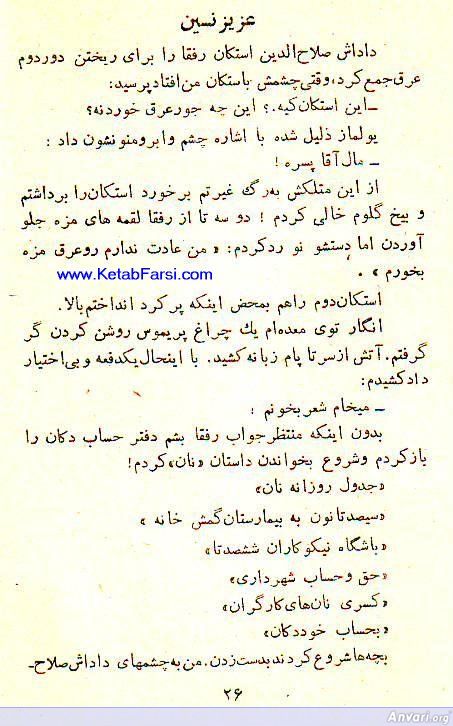 عزیز نسین
داداش صلاح‌الدین استکان رفقا را برای ریختن دور دوم
عرق جمع کرد، وقتی چشمش باستکان من افتاد پرسید:
ـ این استکان کیه.؟ این چه جور عرق خوردنه؟
یولماز ذلیل شده با اشاره چشم و ابرو منو نشون داد :
ـ مال آقا پسره !
از این متلکش به‌رگ غیرتم برخورد استکان را برداشتم
و بیخ گلوم خالی کردم ! دو سه تا از رفقا لقمه های مزه جلو
آوردن اما دستشو نو رد کردم: « من عادت ندارم رو عرق مزه
بخورم » .
www.KetabFarsi.com
استکان دوم را هم بمحض اینکه پر کرد انداختم بالا.
انگار توی معده‌ام یك چراغ پریموس روشن کردن گر
گرفتم. آتش از سر تا پام زبانه کشید. با اینحال یکدفعه و بی‌اختیار
داد کشیدم:
ـ میخام شعر بخونم :
بدون اینکه منتظر جواب رفقا بشم دفتر حساب دکان را
باز کردم و شروع بخواندن داستان «نان» کردم!
«جدول روزانه نان»
«سیصد تا نون به بیمارستان گمش خانه »
«باشگاه نیکوکاران ششصد تا»
«حق و حساب شهرداری»
«کسری نان‌های کارگران»
«بحساب خود دکان»
بچه‌ها شروع کردند بدست زدن. من به چشمهای داداش صلاح‌ـ
۲۶
Anvari.org